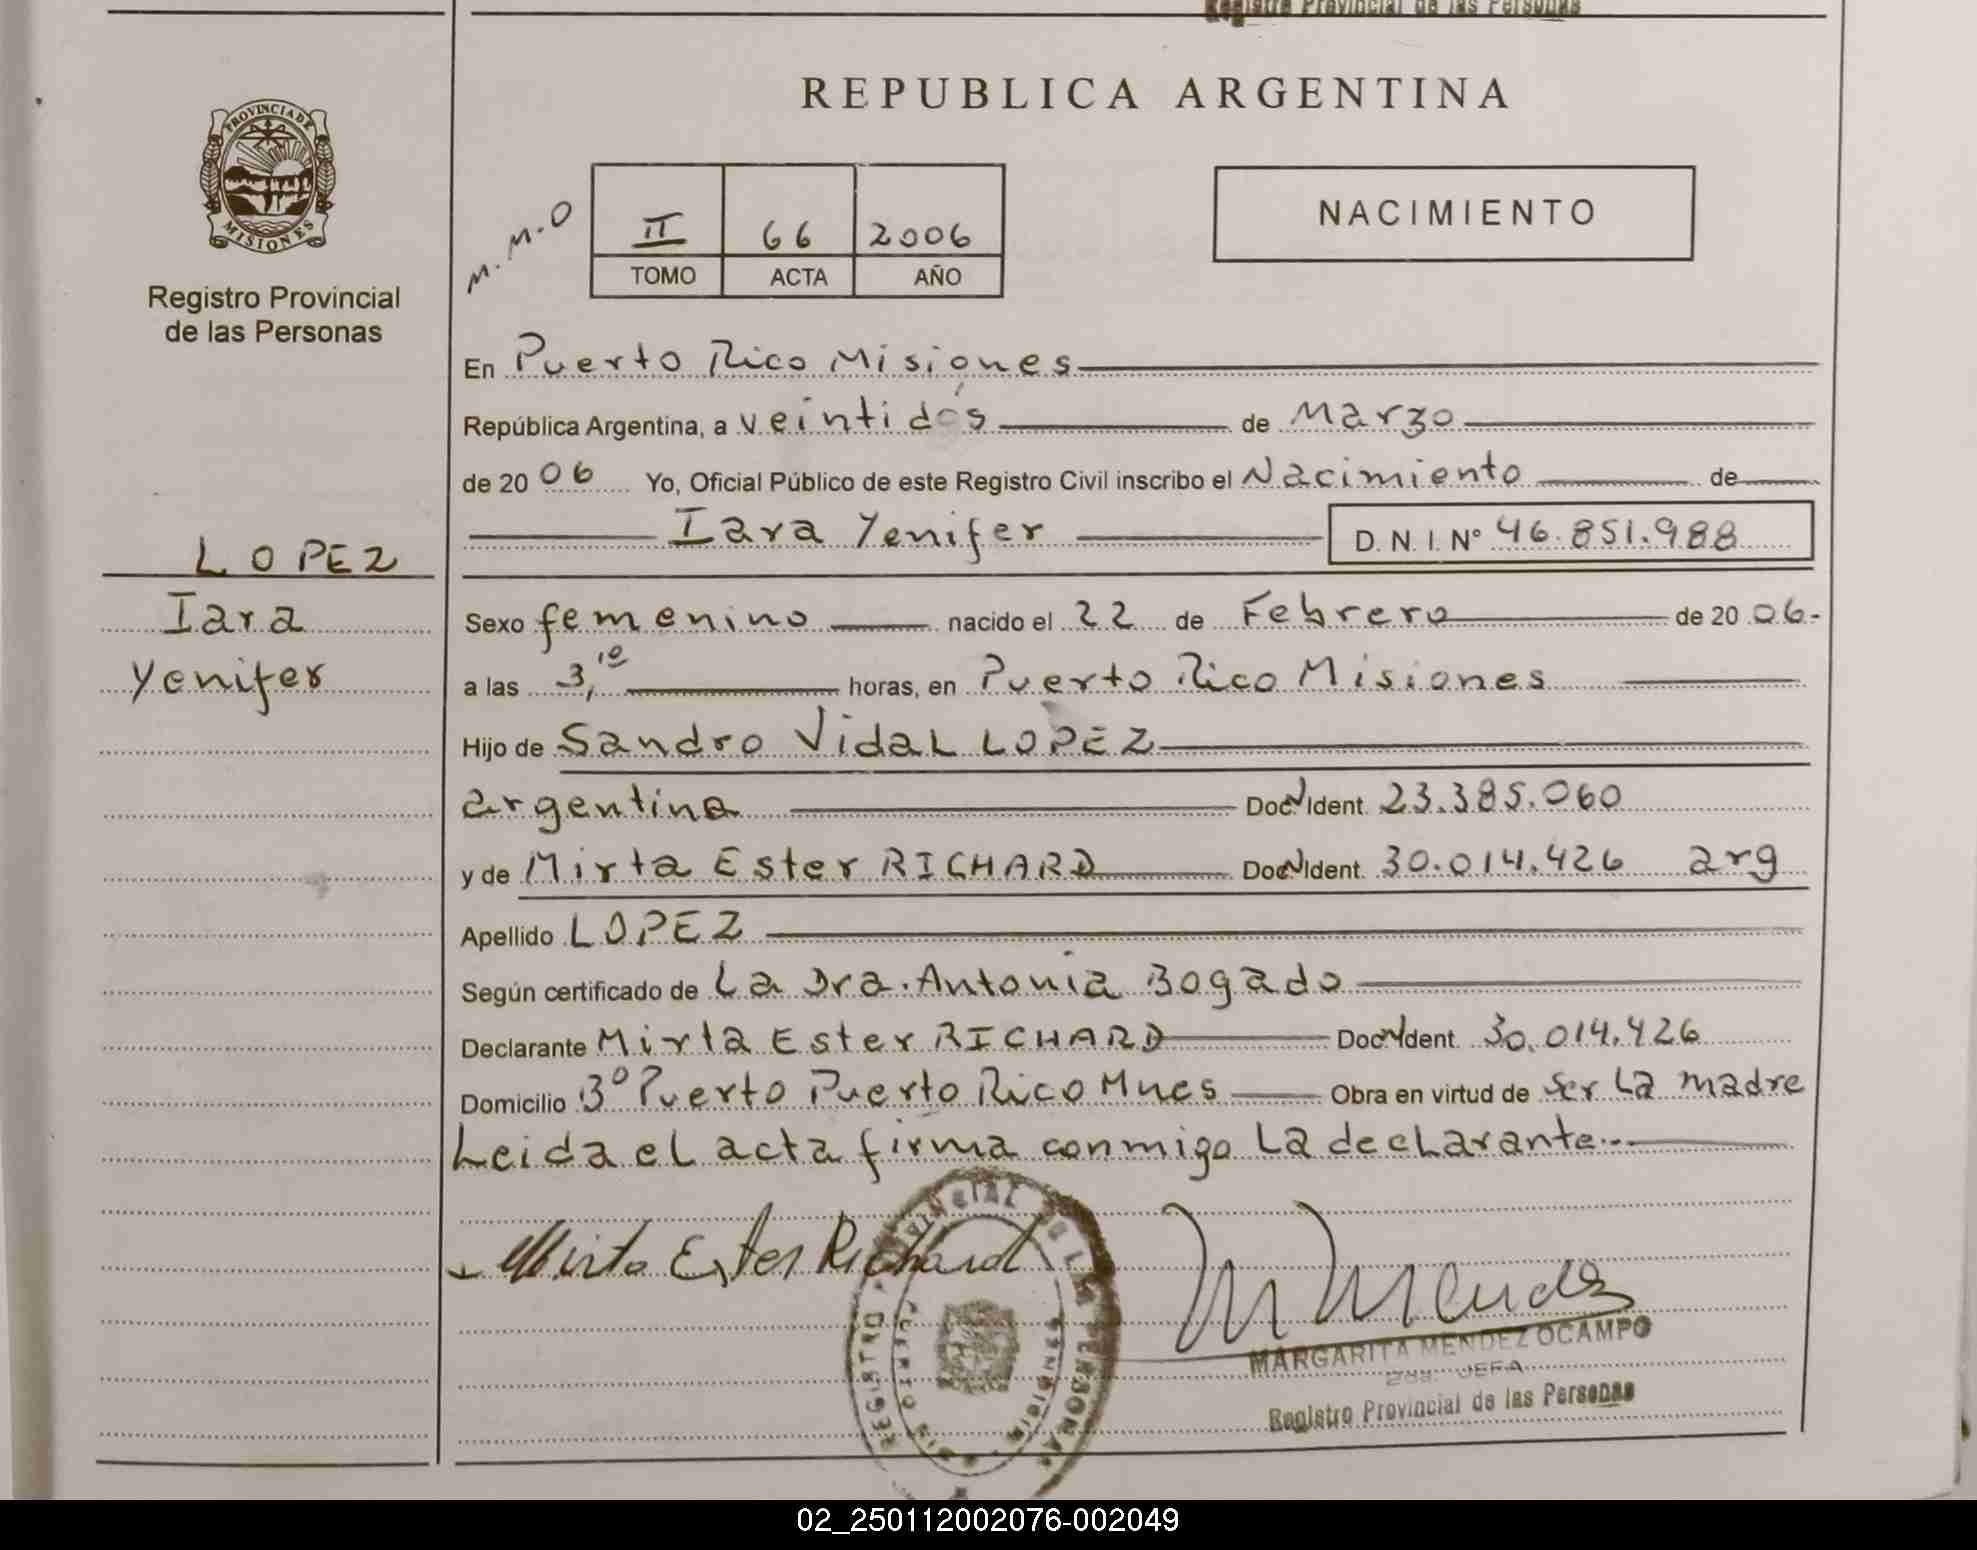 Registro Provincial de las Personas
REPUBLICA ARGENTINA
PROVINCIA DE
MISIONES
Registro Provincial
de las Personas
M.M.O
II 66 2006
TOMO ACTA AÑO
NACIMIENTO
En Puerto Rico Misiones
República Argentina, a veintidós de Marzo
de 2006 Yo, Oficial Público de este Registro Civil inscribo el Nacimiento de
Iara Yenifer D.N.I. N° 46.851.988
LOPEZ
Iara
Yenifer
Sexo femenino nacido el 22 de Febrero de 2006-
a las 3,10 horas, en Puerto Rico Misiones
Hijo de Sandro Vidal LOPEZ
argentina Doc N Ident. 23.385.060
y de Mirta Ester RICHARD Doc N Ident. 30.014.426 arg
Apellido LOPEZ
Según certificado de La Dra. Antonia Bogado
Declarante Mirta Ester RICHARD Doc N Ident. 30.014.426
Domicilio 3° Puerto Puerto Rico Mnes Obra en virtud de ser La madre
Leida el acta firma conmigo La declarante..-
Mirta Ester Richard
M Mendez
REGISTRO PROVINCIAL DE LAS PERSONAS
PUERTO RICO MISIONES
MARGARITA MENDEZ OCAMPO
JEFA
Registro Provincial de las Personas
02_250112002076-002049